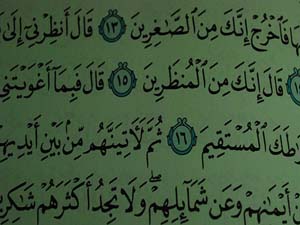 فَٱخْرُجْ إِنَّكَ مِنَ ٱلصَّٰغِرِينَ ١٣ قَالَ أَنظِرْنِىٓ إِلَىٰ
قَالَ إِنَّكَ مِنَ ٱلْمُنظَرِينَ ١٥ قَالَ فَبِمَآ أَغْوَيْتَنِى
ٱلْمُسْتَقِيمَ ١٦ ثُمَّ لَـَٔاتِيَنَّهُم مِّنۢ بَيْنِ أَيْدِيهِ
أَيْمَٰنِهِمْ وَعَن شَمَآئِلِهِمْ ۖ وَلَا تَجِدُ أَكْثَرَهُمْ شَٰكِرِينَ